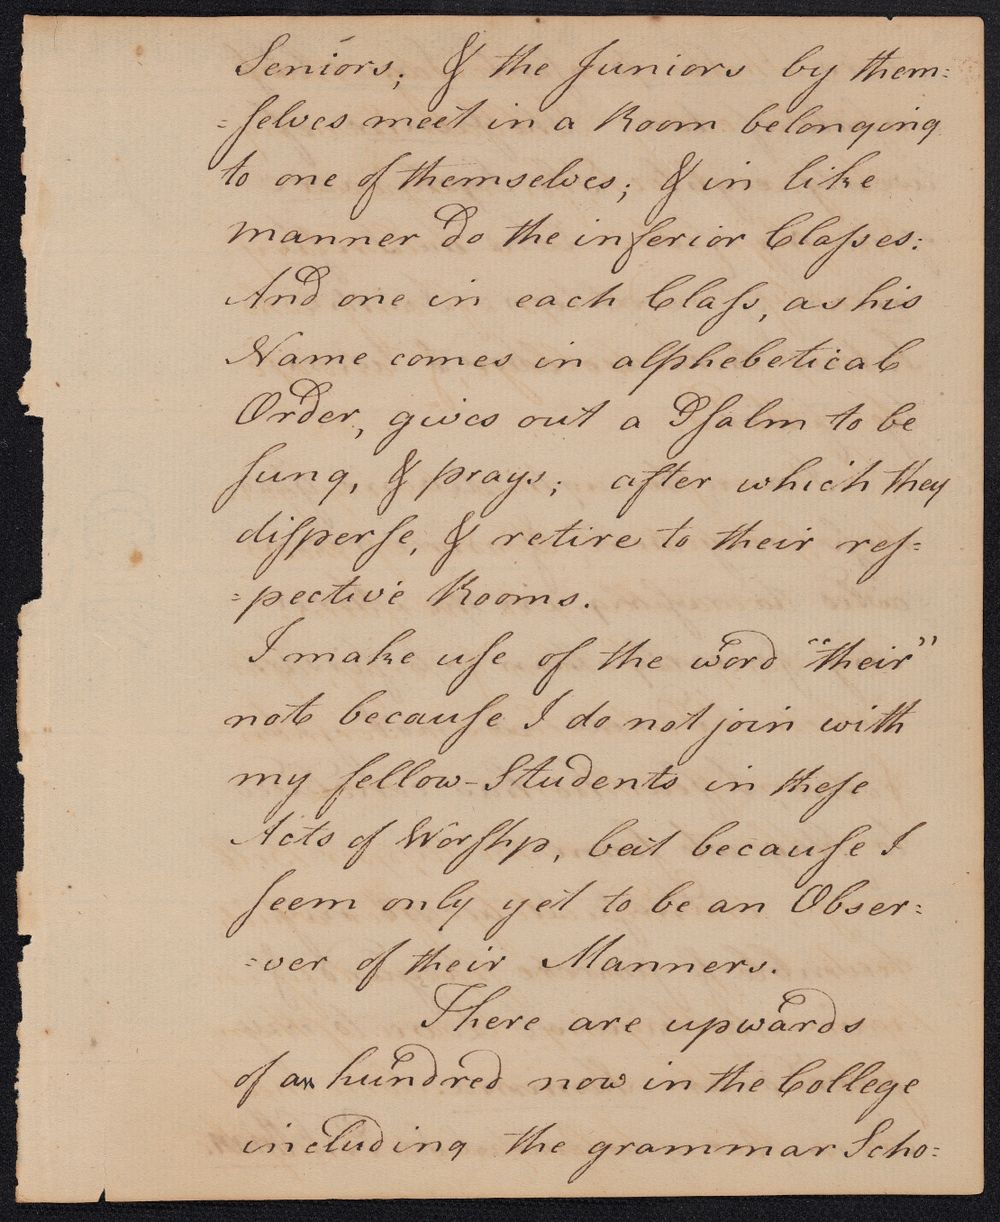 Seniors; & the Juniors by them=
=selves meet in a Room belonging
to one of themselves; & in like
manner do the inferior Classes:
And one in each Class, as his
Name comes in alphebetical
Order, gives out a Psalm to be
sung, & prays; after which they
disperse, & retire to their res=
=pective Rooms.
I make use of the word "their"
not because I do not join with
my fellow-Students in these
Acts of Worshp, but because I
seem only yet to be an Obser=
=ver of their Manners.
There are upwards
of an hundred now in the College
including the grammar Scho=